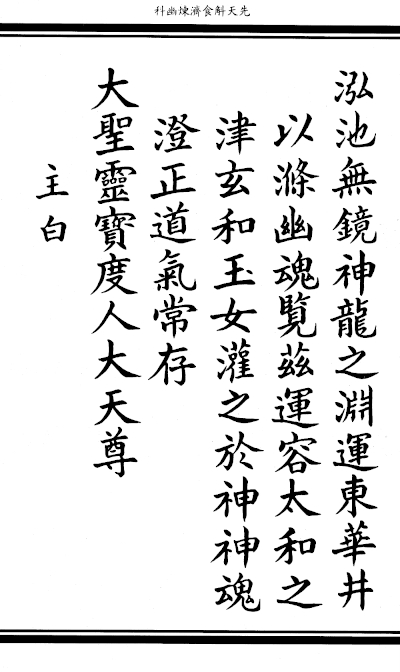 先天斛食濟煉幽科
泓池無鏡神龍之淵運東華井
以滌幽魂覽茲運容太和之
津玄和玉女灌之於神神魂
澄正道氣常存
大聖靈寶度人大天尊
主白